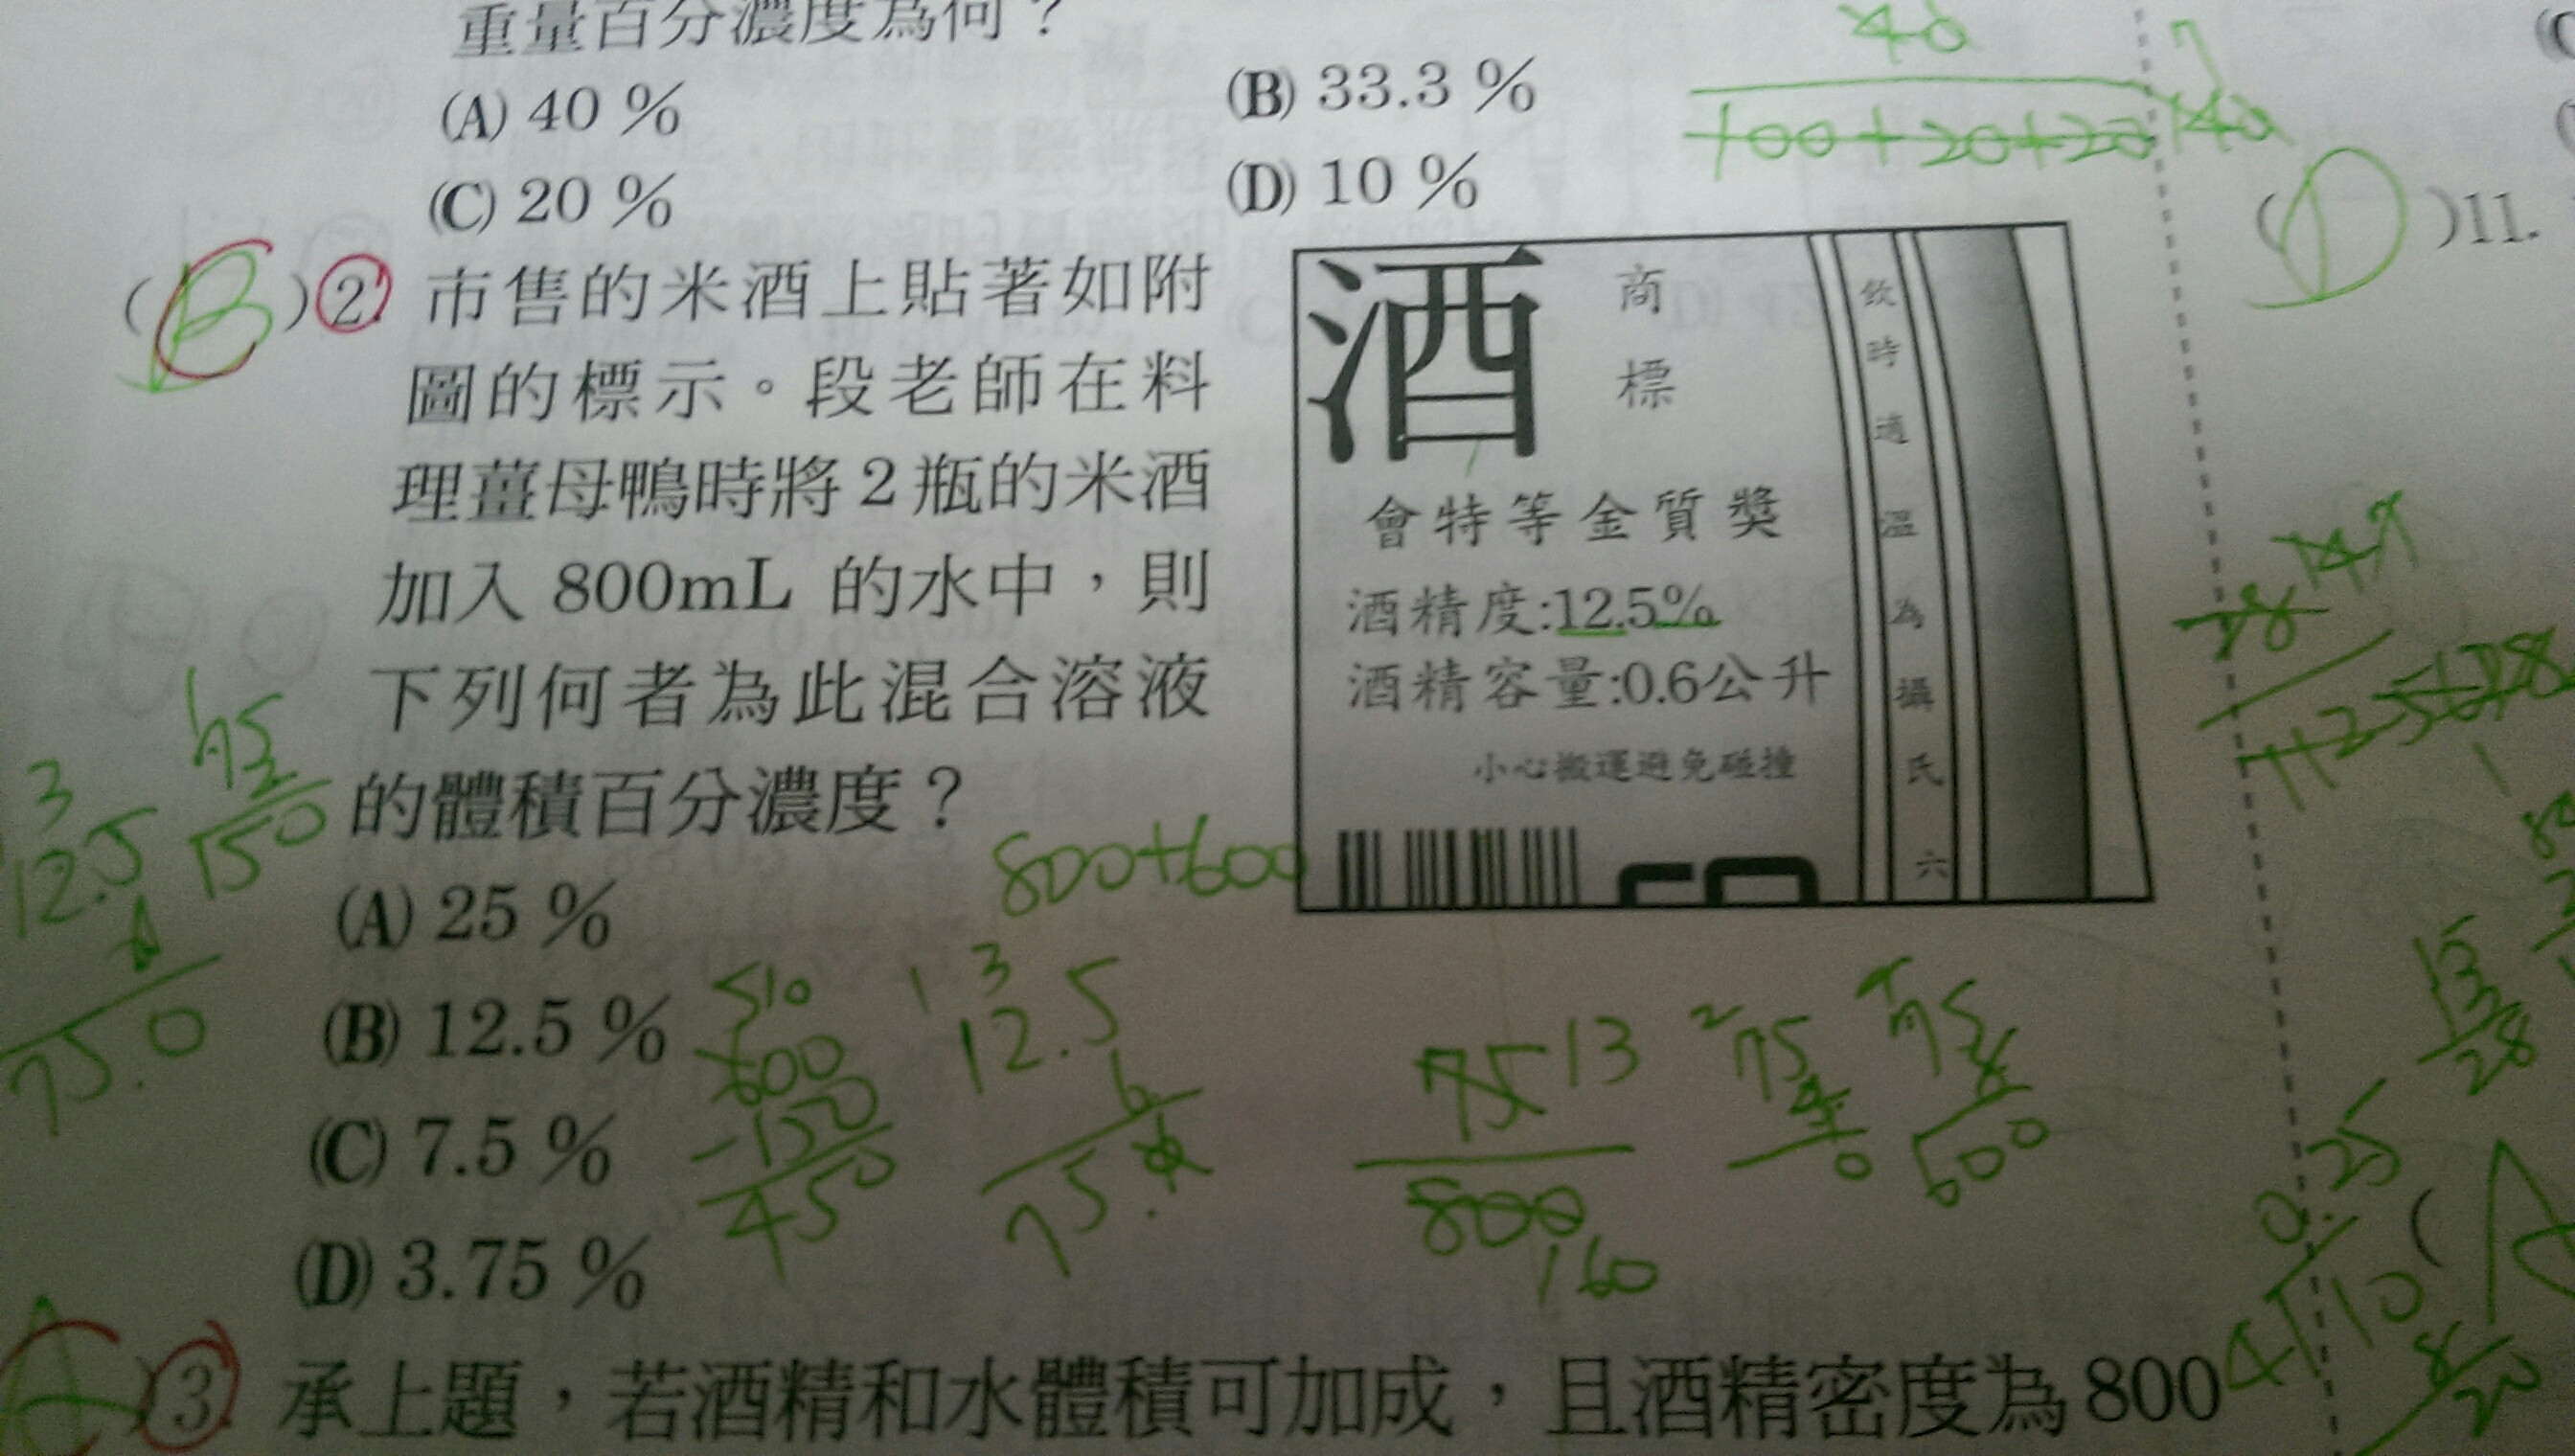 重量百分濃度為何？
(A) 40 %
(B) 33.3 %
(C) 20 %
(D) 10 %
40
7
100+20+20
140
(D)11.
(B)2. 市售的米酒上貼著如附
圖的標示。段老師在料
理薑母鴨時將2瓶的米酒
加入 800mL 的水中，則
下列何者為此混合溶液
的體積百分濃度？
(A) 25 %
(B) 12.5 %
(C) 7.5 %
(D) 3.75 %
酒
商標
會特等金質獎
酒精度:12.5%
酒精容量:0.6公升
小心搬運避免碰撞
飲時適溫為攝氏六
800+600
3
12.5
75.0
1
75
2
150
510
600
-150
450
1 3
12.5
6
75.
75 13
800
160
2
75
0
75
600
15
28
0.25
4 10
8
20
(A
3. 承上題，若酒精和水體積可加成，且酒精密度為800